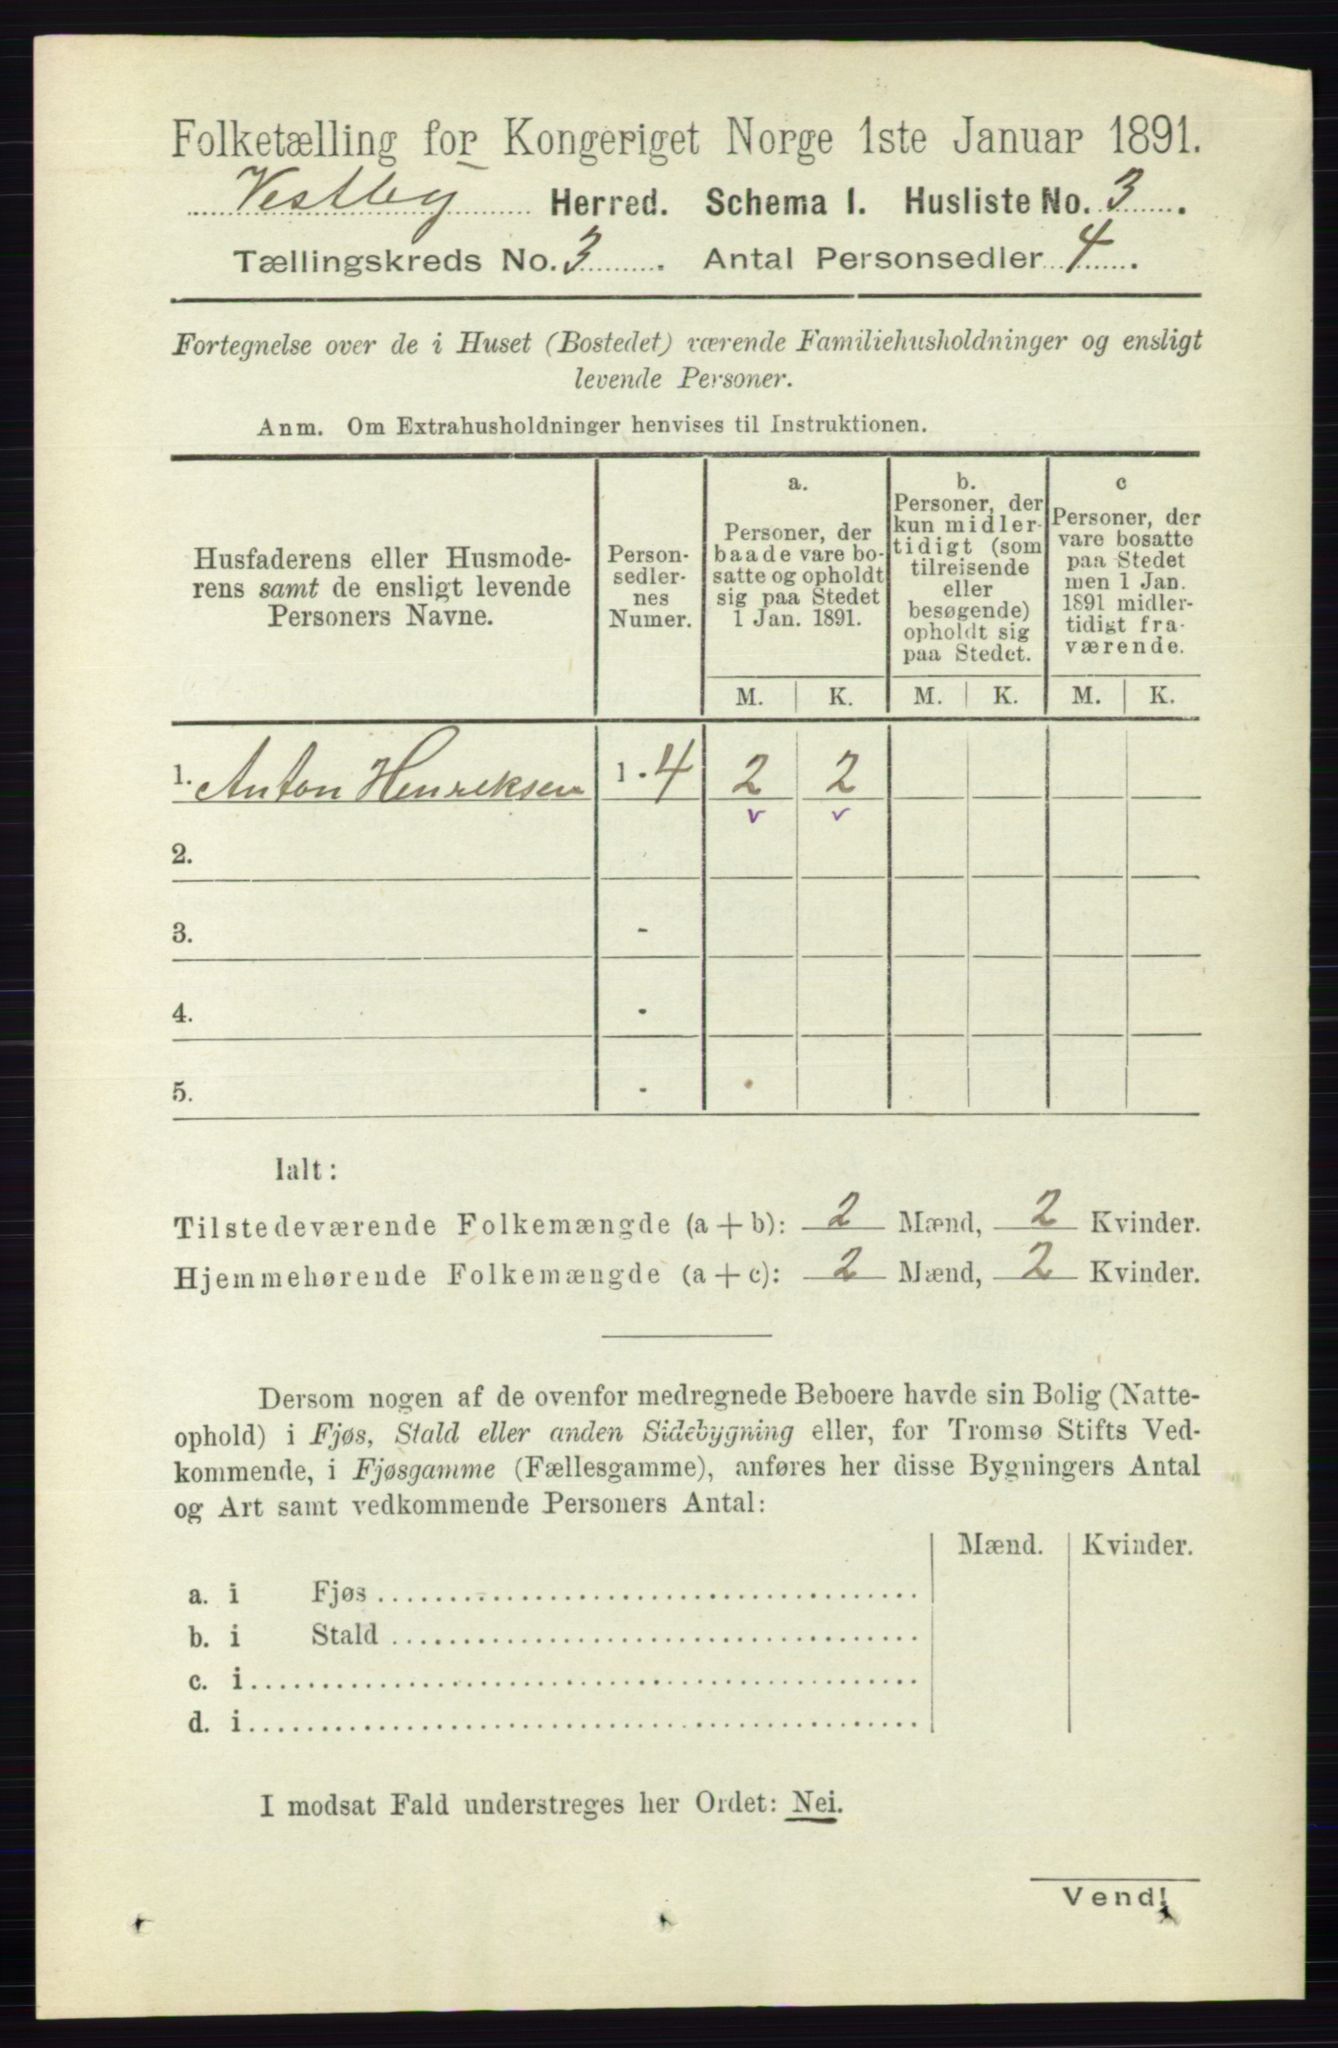 Folketælling for Kongeriget Norge 1ste Januar 1891.
Vestby Herred. Schema I. Husliste No. 3.
Tællingskreds No. 3. Antal Personsedler 4.
Fortegnelse over de i Huset (Bostedet) værende Familiehusholdninger og ensligt
levende Personer.
Anm. Om Extrahusholdninger henvises til Instruktionen.
Husfaderens eller Husmode-
rens samt de ensligt levende
Personers Navne.
Person-
sedler-
nes
Numer.
a.
Personer, der
baade vare bo-
satte og opholdt
sig paa Stedet
1 Jan. 1891.
b.
Personer, der
kun midler-
tidigt (som
tilreisende
eller
besøgende)
opholdt sig
paa Stedet.
c
Personer, der
vare bosatte
paa Stedet
men 1 Jan.
1891 midler-
tidigt fra-
værende.
M. K. M. K. M. K.
1. Anton Henriksen 1 - 4 2 2
v v
2.
3. -
4. -
5. -
Ialt:
Tilstedeværende Folkemængde (a + b): 2 Mænd, 2 Kvinder.
Hjemmehørende Folkemængde (a + c): 2 Mænd, 2 Kvinder.
Dersom nogen af de ovenfor medregnede Beboere havde sin Bolig (Natte-
ophold) i Fjøs, Stald eller anden Sidebygning eller, for Tromsø Stifts Ved-
kommende, i Fjøsgamme (Fællesgamme), anføres her disse Bygningers Antal
og Art samt vedkommende Personers Antal:
Mænd. Kvinder.
a. i Fjøs
b. i Stald
c. i
d. i
I modsat Fald understreges her Ordet: Nei.
Vend!